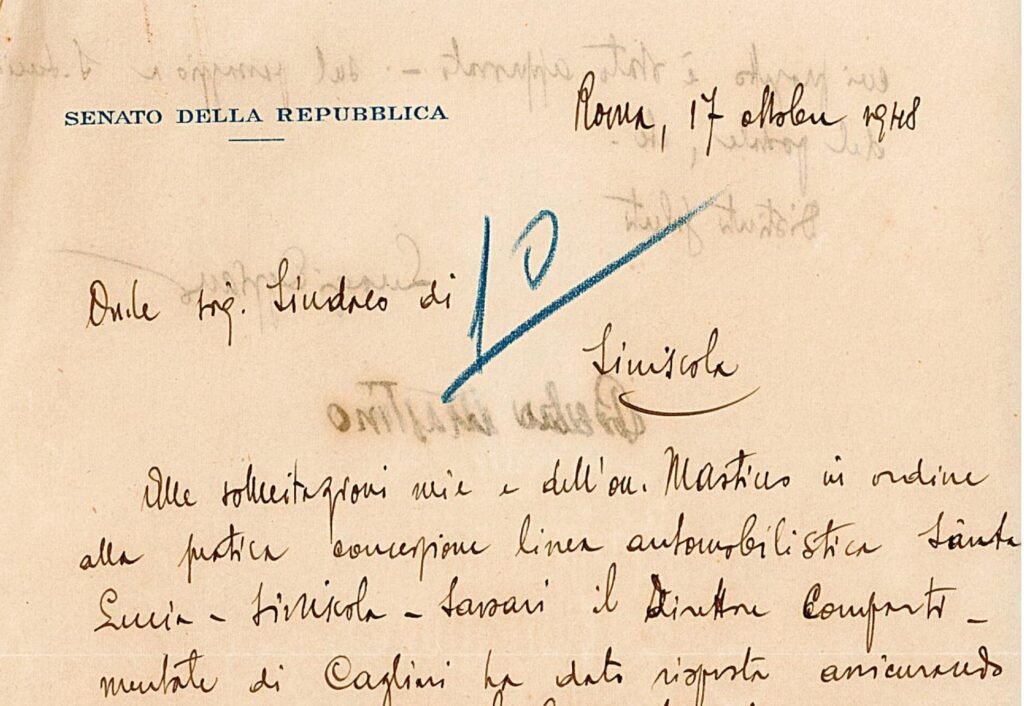 SENATO DELLA REPUBBLICA
Roma, 17 ottobre 1948
10
On.le sig. Sindaco di
Siniscola
Alle sollecitazioni mie e dell'on. Mastino in ordine
alla pratica concessione linea automobilistica Santa
Lucia - Siniscola - Sassari il Direttore Comparti-
mentale di Cagliari ha dato risposta assicurando